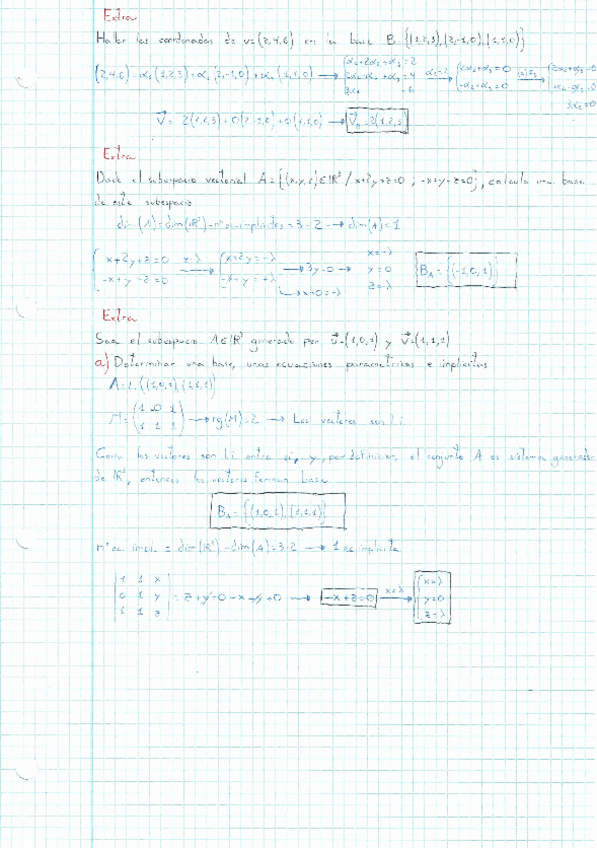 Extra
Hallar las coordenadas de v=(2,4,6) en la base B={(1,2,3),(2,-1,0),(1,1,0)}
(2,4,6)=α₁(1,2,3)+α₂(2,-1,0)+α₃(1,1,0) →
V= 2(1,2,3)+0(2,-1,0)+0(1,1,0) →
Extra
Dado el subespacio vectorial A={(x,y,z)∈ℝ³/x+2y+z=0 ; -x+y-z=0}, calcula una base
de este subespacio
dim(A)=dim(ℝ³)-nº ec. implícitas=3-2 → dim(A)=1
x=-λ
x+2y+z=0 z=λ x+2y=-λ → 3y=0 → y=0 B_A={(-1,0,1)}
-x+y-z=0 z=λ
→ x+0=-λ
Extra
Sea el subespacio A∈ℝ³ generado por u=(1,0,1) y v=(1,1,1)
a) Determinar una base, unas ecuaciones parametricas e implicitas
A=L{(1,0,1),(1,1,1)}
M=(1 0 1
1 1 1) → rg(M)=2 → Los vectores son l.i.
Como los vectores son l.i. entre si, y, por definición, el conjunto A es sistema generador
de ℝ³, entonces los vectores forman base
B_A={(1,0,1),(1,1,1)}
nº ec. impl. = dim(ℝ³)-dim(A)=3-2 → 1 ec implícita
1 1 x x=λ
0 1 y =z+y+0-x-y+0 → -x+z=0 x=λ → y=0
1 1 z z=λ